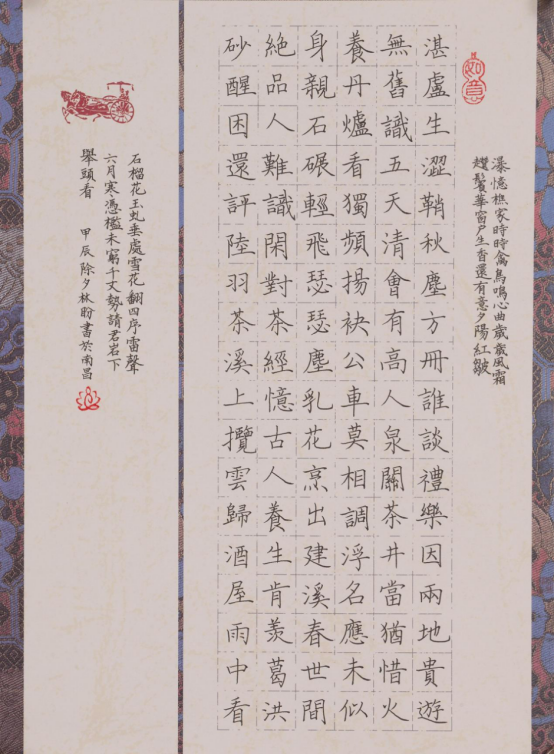 湛盧生澀鞘秋塵方冊誰談禮樂因兩地貴遊
無舊識五天清會有高人泉關茶井當猶惜火
養丹爐看獨頻揚袂公車莫相調浮名應未似
身親石碾輕飛瑟瑟塵乳花烹出建溪春世間
絕品人難識閑對茶經憶古人養生肯羨葛洪
砂醒困還評陸羽茶溪上攬雲歸酒屋雨中看
如意
瀑憶樵家時時禽鳥鳴心曲歲歲風霜
趲鬢華窗戶生香還有意夕陽紅皺
石榴花玉虬垂處雪花翻四序雷聲
六月寒憑檻未窮千丈勢請君岩下
舉頭看 甲辰除夕林盼書於南昌